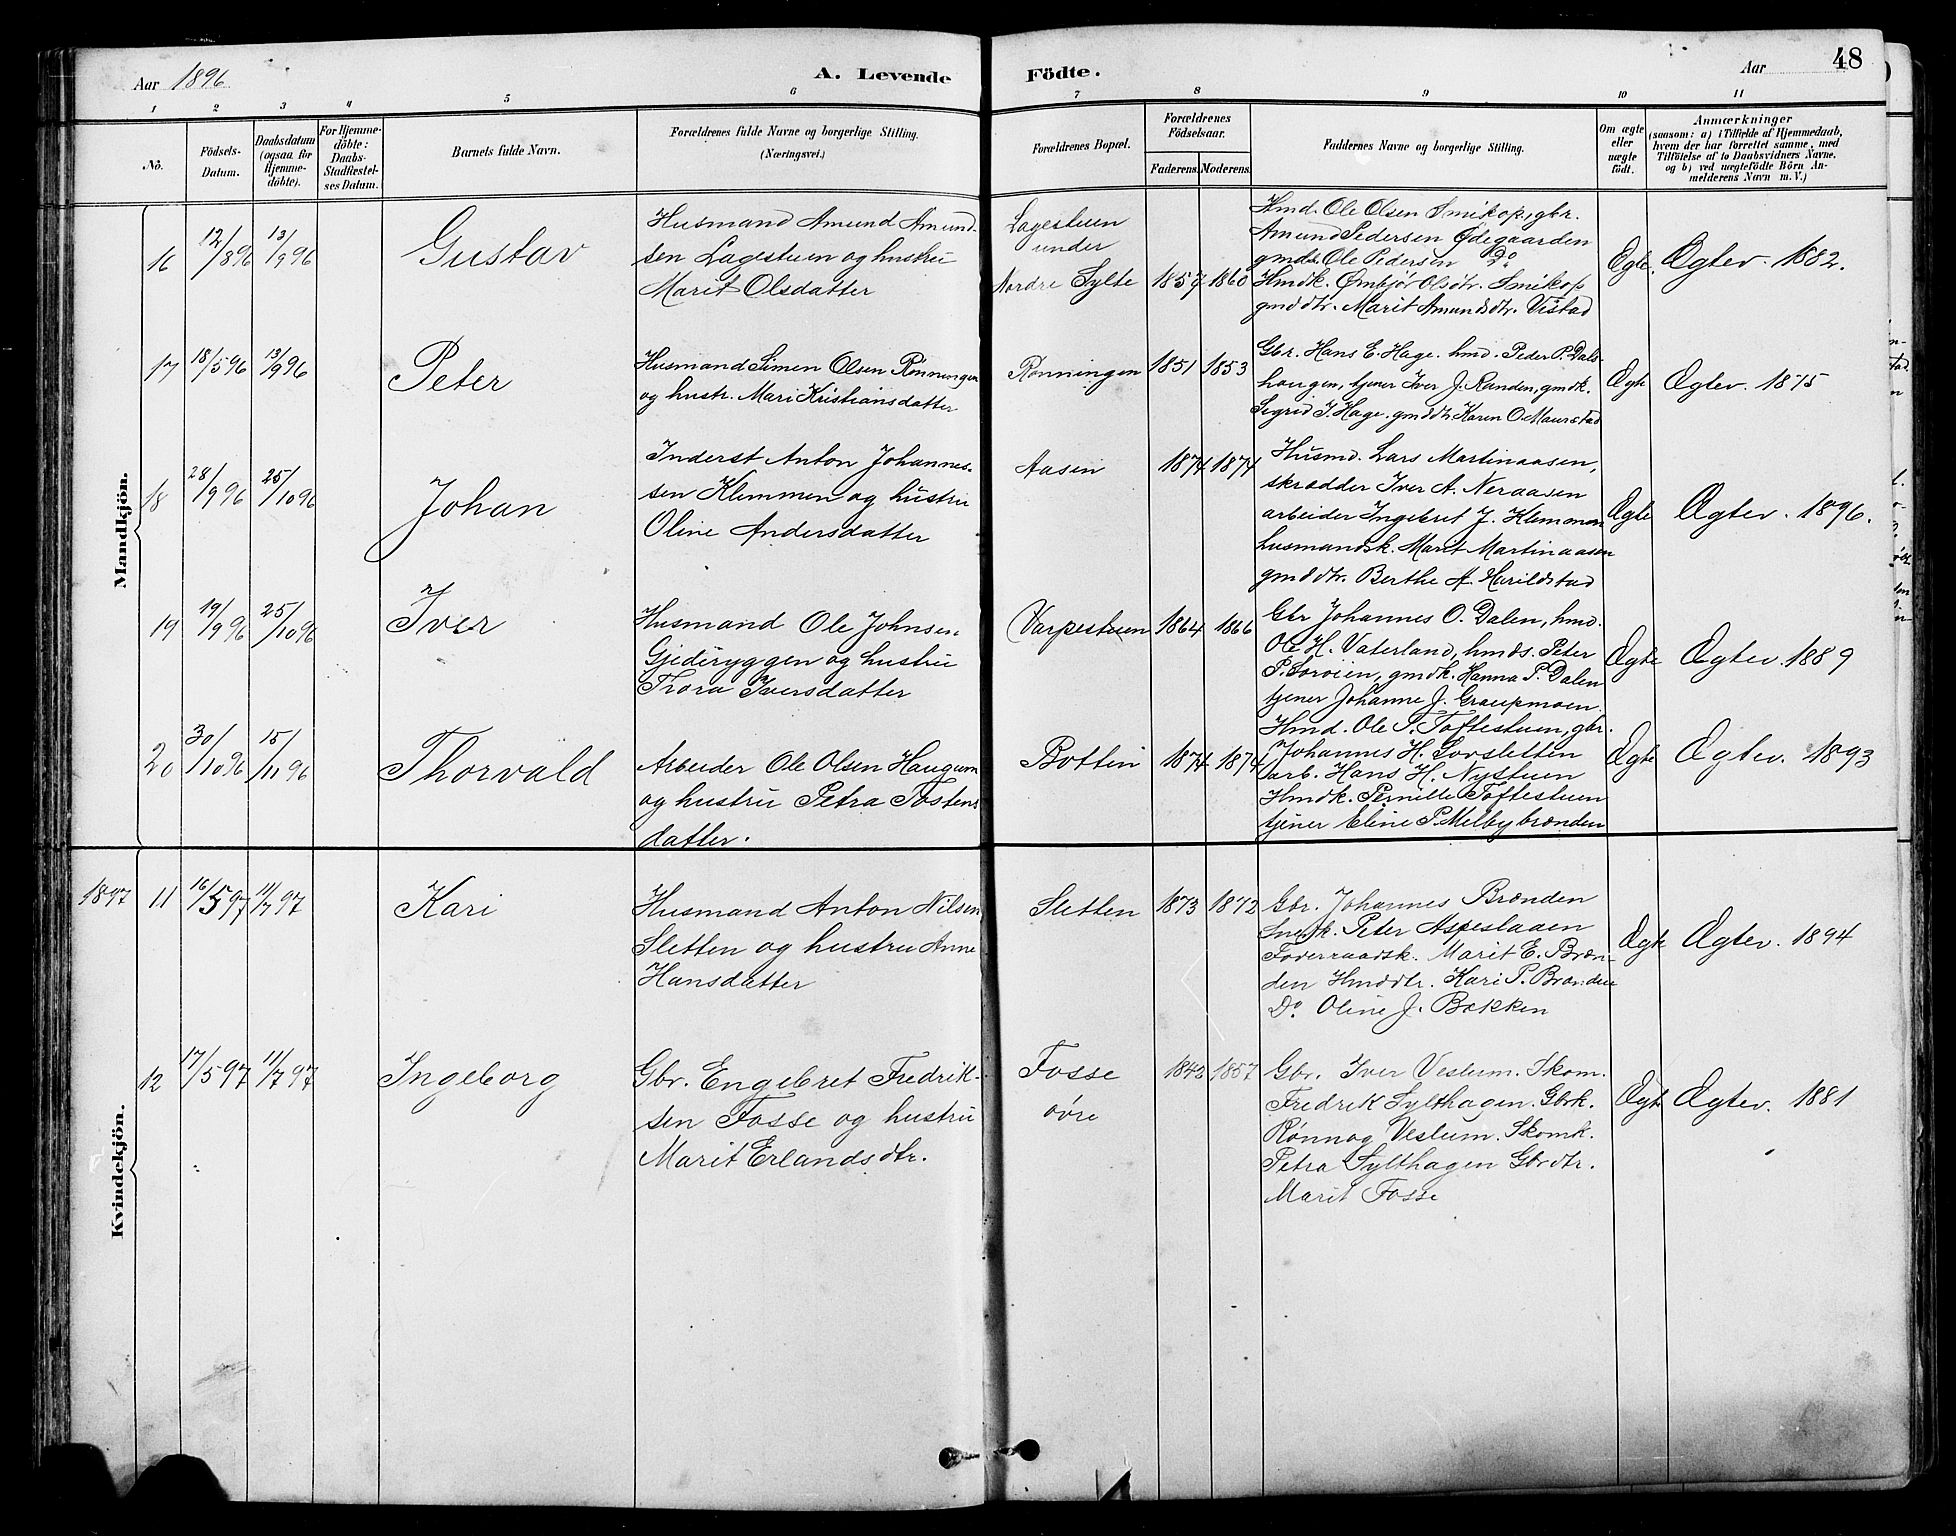 Aar 1896
A. Levende Födte.
Aar 48
1 2 3 4 5 6 7 8 9 10 11
No.
Födsels-Datum.
Daabsdatum (ogsaa for Hjemme-döbte).
For Hjemme-döbte: Daabs-Stadfæstel-ses Datum.
Barnets fulde Navn.
Forældrenes fulde Navne og borgerlige Stilling. (Næringsvei.)
Forældrenes Bopæl.
Forældrenes Födselsaar.
Faderens. Moderens.
Faddernes Navne og borgerlige Stilling.
Om ægte eller uægte födt.
Anmærkninger
(saasom: a) i Tilfælde af Hjemmedaab,
hvem der har forrettet samme, med
Tilföielse af to Daabsvidners Navne,
og b) ved uægtefödte Börn An-
melderens Navn m. V.)
Mandkjön.
16 12/8 96 13/9 96 Gustav
Husmand Amund Amund-
sen Lagestuen og hustru
Marit Olsdatter
Lagestuen
under
Nordre Sylte 1857 1860
Hmd. Ole Olsen Smikop, gbr.
Amund Pedersen Ødegaarden
gmds. Ole Pedersen Do
Hmdk. Ømbjør Olsdtr. Smikop
gmddtr. Marit Amundsdtr. Vistad
Ægte. Ægtev. 1882.
17 18/5 96 13/9 96 Peter
Husmand Simen Olsen Rønningen
og hustr. Mari Kristiansdatter
Rønningen 1851 1853
Gbr. Hans E. Hage. hmd. Peder P. Dals-
haugen, tjener Iver J. Randen, gmdk.
Sigrid J. Hage. gmddtr Karen O. Maurstad
Ægte Ægtev. 1875
18 28/9 96 25/10 96 Johan
Inderst Anton Johannes-
sen Klemmen og hustru
Oline Andersdatter
Aasen 1874 1874
Husmd. Lars Martinaasen,
skrædder Iver A. Neraasen
arbeider Ingebret J. Klemmen
husmandsk. Marit Martinaasen
gmddtr. Berthe A. Harildstad
Ægte Ægtev. 1896.
19 19/9 96 25/10 96 Iver
Husmand Ole Johnsen
Gjederyggen og hustru
Thora Iversdatter
Varpestuen 1864 1866
Gbr Johannes O. Dalen, hmd.
Ole H. Vaterland, hmds. Peter
P. Sorøien, gmdk. Hanna P. Dalen
tjener Johanne J. Graupmoen.
Ægte Ægtev. 1889
20 30/10 96 15/11 96 Thorvald
Arbeider Ole Olsen Haugum
og hustru Petra Tostens
datter.
Botten 1874 1874
Hmd. Ole P. Toftestuen, gbr.
Johannes H. Sorsletten
arb. Hans H. Nystuen
Hmdk. Pernille Toftestuen
tjener Eline P. Melbybrænden
Ægte Ægtev. 1893
Kvindekjön.
1897 11 16/5 97 11/7 97 Kari
Husmand Anton Nilsen
Sletten og hustru Anne
Hansdatter
Sletten 1873 1872
Gbr. Johannes Brænden
Snedk. Peter Aspeslaaen
Foderraadsk. Marit E. Bræn-
den Hmddtr. Kari P. Brænden
Do. Oline J. Bakken
Ægte Ægtev. 1894
12 17/5 97 11/7 97 Ingeborg
Gbr. Engebret Fredrik-
sen Fosse og hustru
Marit Erlandsdtr.
Fosse
øvre 1843 1857
Gbr. Iver Veslum. Skom.
Fredrik Sylthagen. Gbrk.
Rønnog Veslum. Skomk.
Petra Sylthagen Gbrdtr.
Marit Fosse
Ægte Ægtev. 1881